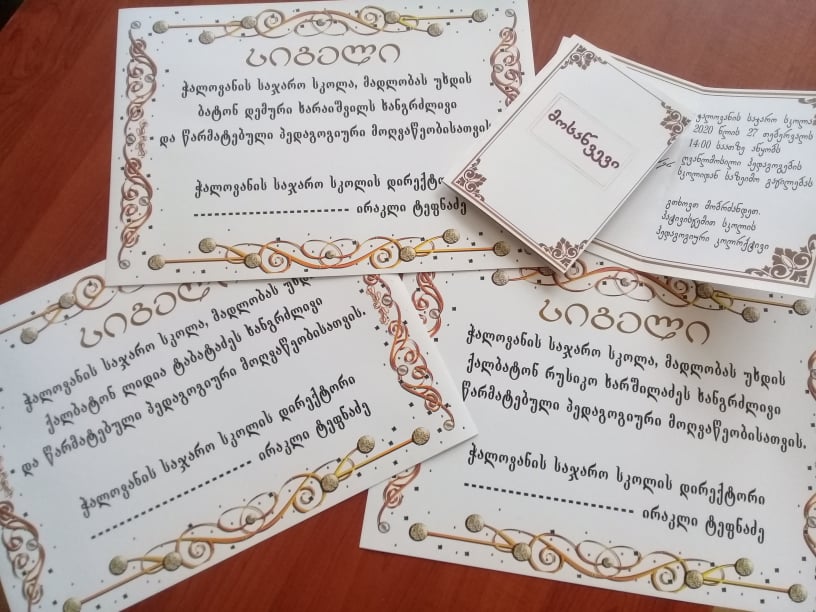 სიგელი
ჭალოვანის საჯარო სკოლა, მადლობას უხდის
ბატონ დემური ხარაიშვილს ხანგრძლივი
და წარმატებული პედაგოგიური მოღვაწეობისათვის
ჭალოვანის საჯარო სკოლის დირექტო
---------------------- ირაკლი ტეფნაძე
მოსაწვევი
ჭალოვანის საჯარო სკოლა
2020 წლის 27 თებერვალს
14:00 საათზე აწყობს
ღვაწლმოსილი პედაგოგების
სკოლიდან საზეიმო გაცილებას
გთხოვთ მობრძანდეთ.
პატივისცემით სკოლის
პედაგოგიური კოლექტივი
სიგელი
ჭალოვანის საჯარო სკოლა, მადლობას უხდ
ქალბატონ ლიდია ტაბატაძეს ხანგრძლივი
და წარმატებული პედაგოგიური მოღვაწეობისათვის.
ჭალოვანის საჯარო სკოლის დირექტორი
---------------------- ირაკლი ტეფნაძე
სიგელი
ჭალოვანის საჯარო სკოლა, მადლობას უხდის
ქალბატონ რუსიკო ხარშილაძეს ხანგრძლივი
წარმატებული პედაგოგიური მოღვაწეობისათვის.
ჭალოვანის საჯარო სკოლის დირექტორი
---------------------- ირაკლი ტეფნაძე